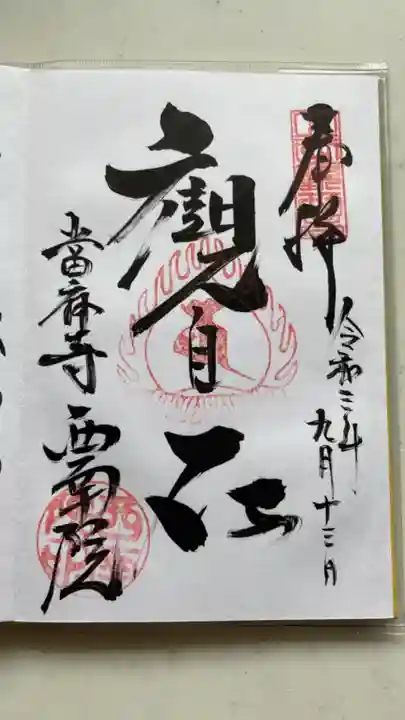 奉拝
令和三年
九月十三日
觀自在
當麻寺
西南院